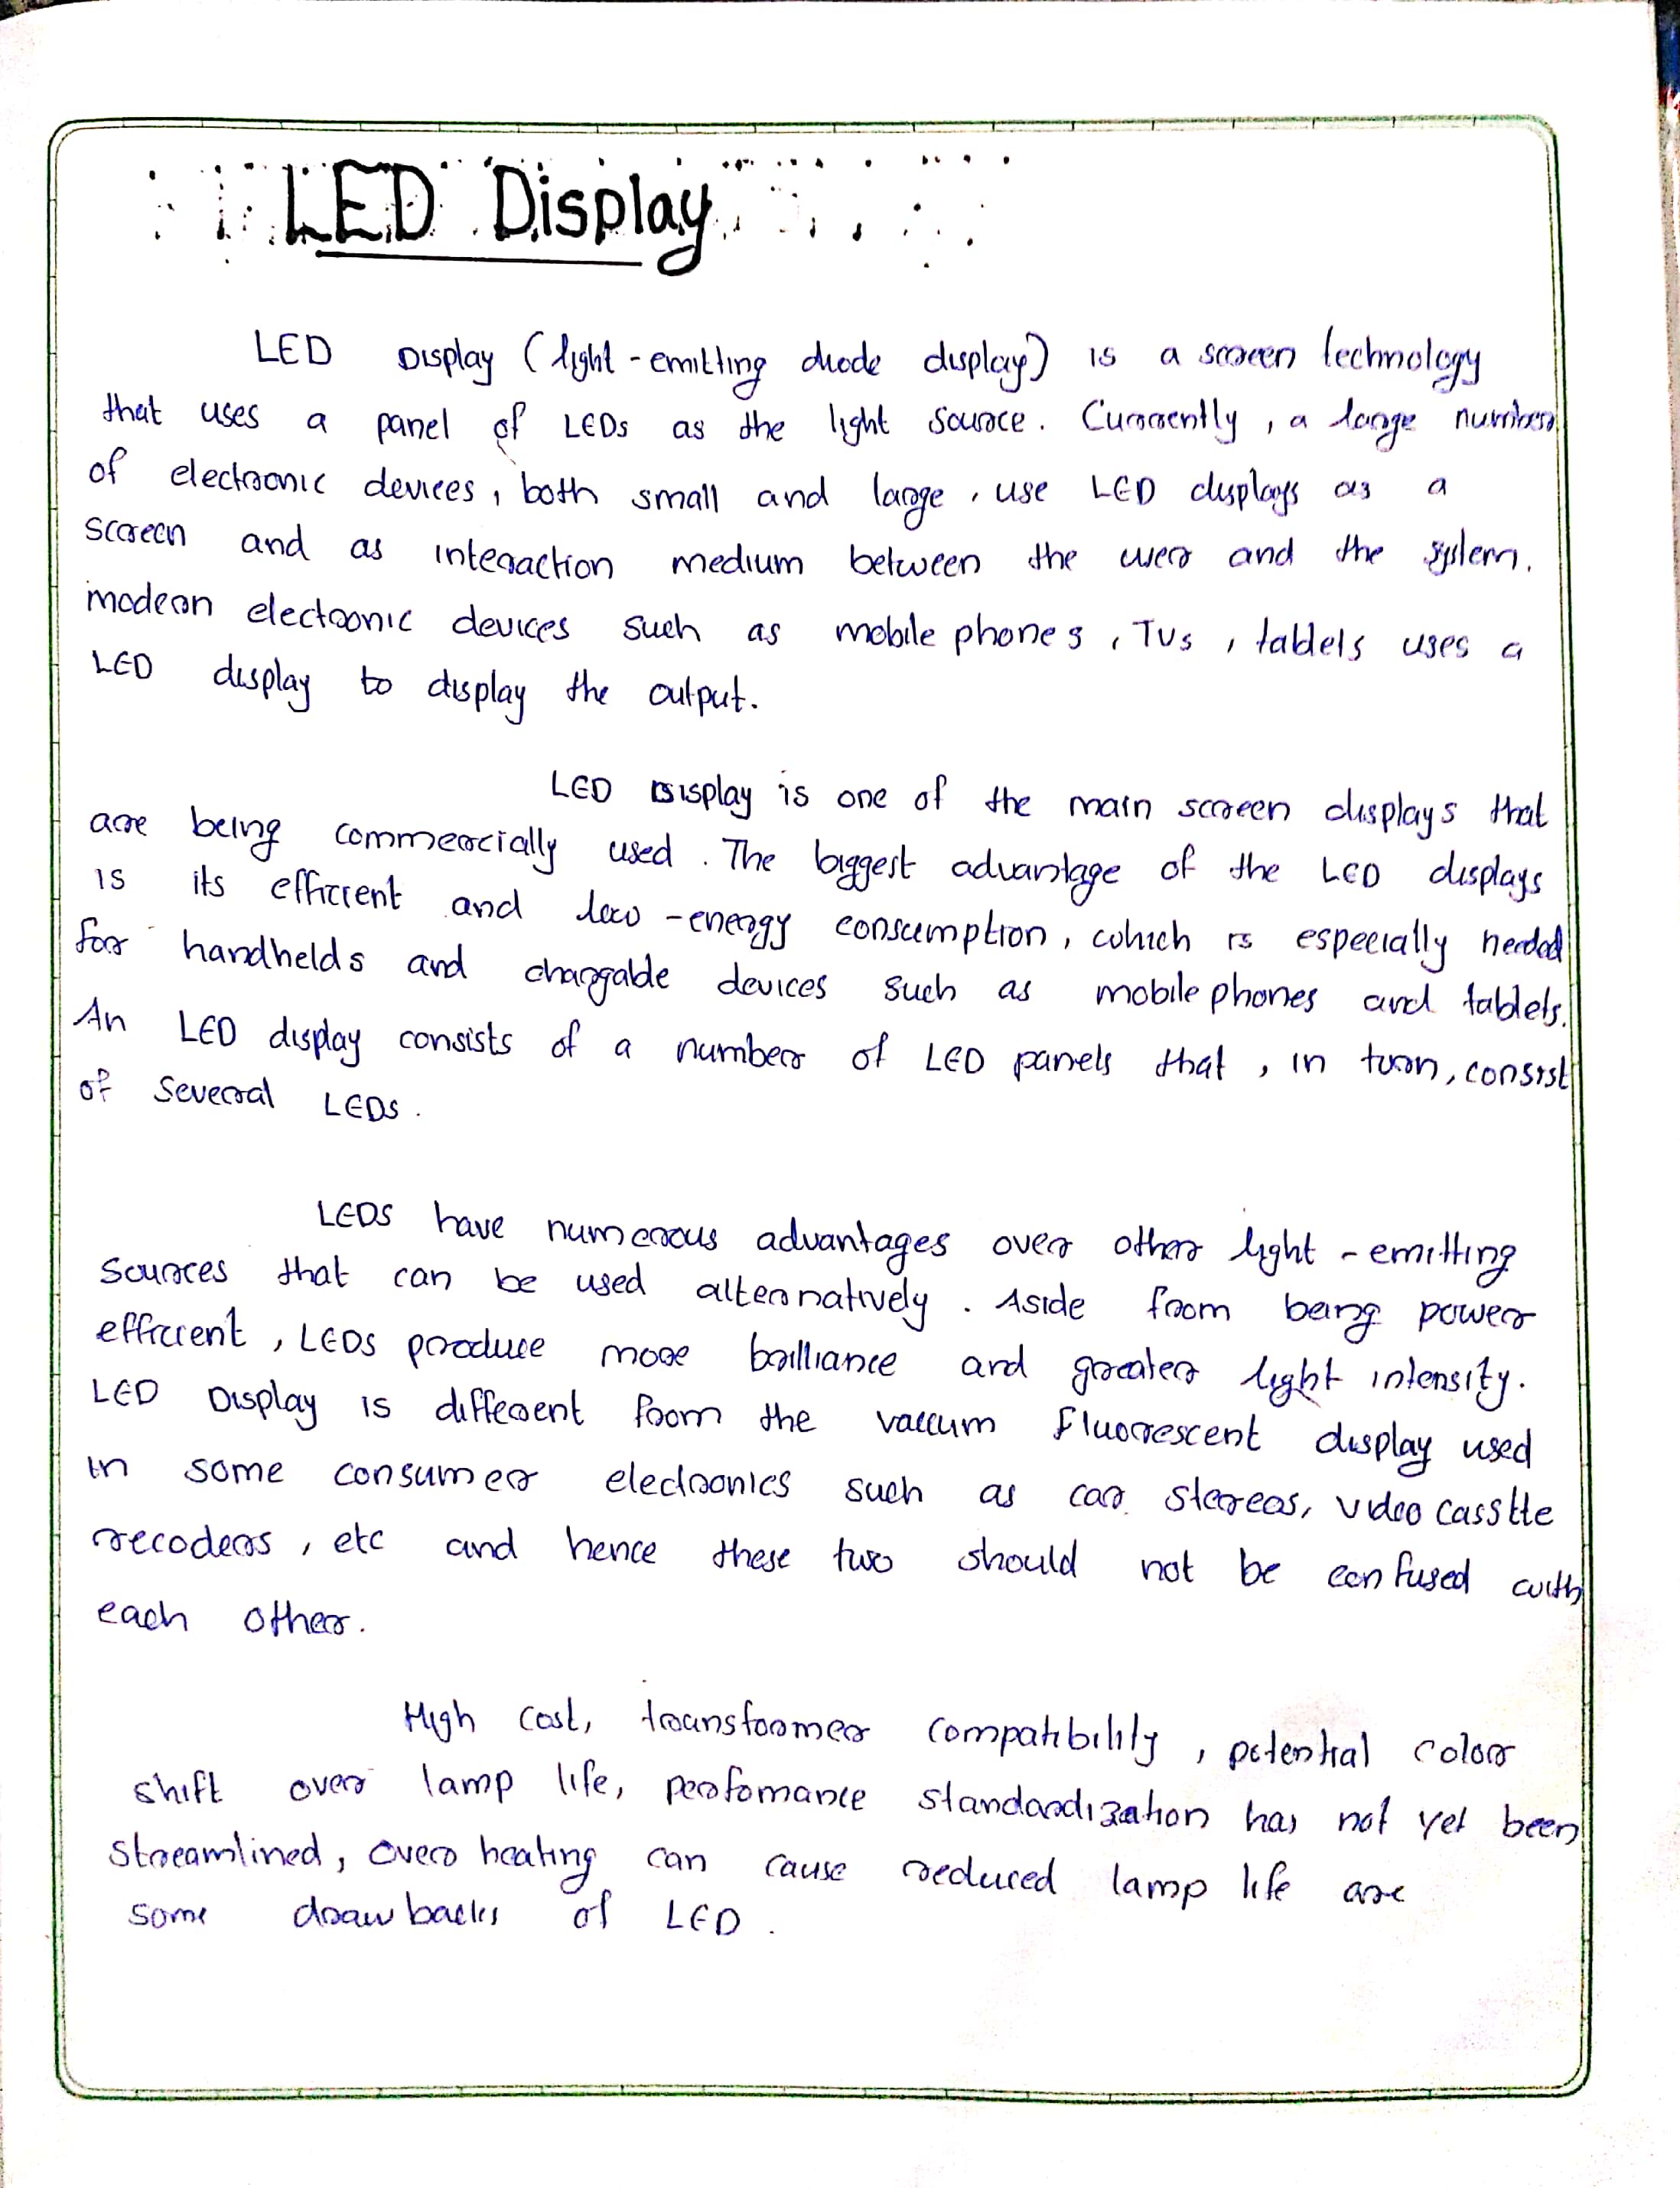 LED Display
LED Display (light-emitting diode display) is a screen technology
that uses a panel of LEDs as the light source. Currently, a large number
of electronic devices, both small and large, use LED displays as a
screen and as interaction medium between the user and the system.
modern electronic devices such as mobile phones, TVs, tablets uses a
LED display to display the output.
LED Display is one of the main screen displays that
are being commercially used. The biggest advantage of the LED displays
is its efficient and low-energy consumption, which is especially needed
for handhelds and chargable devices such as mobile phones and tablets.
An LED display consists of a number of LED panels that, in turn, consist
of several LEDs.
LEDs have numerous advantages over other light-emitting
sources that can be used alternatively. Aside from being power
efficient, LEDs produce more brilliance and greater light intensity.
LED Display is different from the vaccum fluorescent display used
in some consumer electronics such as car stereos, video casstte
recoders, etc and hence these two should not be confused with
each other.
High cost, transformer compatibility, potential color
shift over lamp life, perfomance standardization has not yet been
streamlined, over heating can cause reduced lamp life are
some drawbacks of LED.